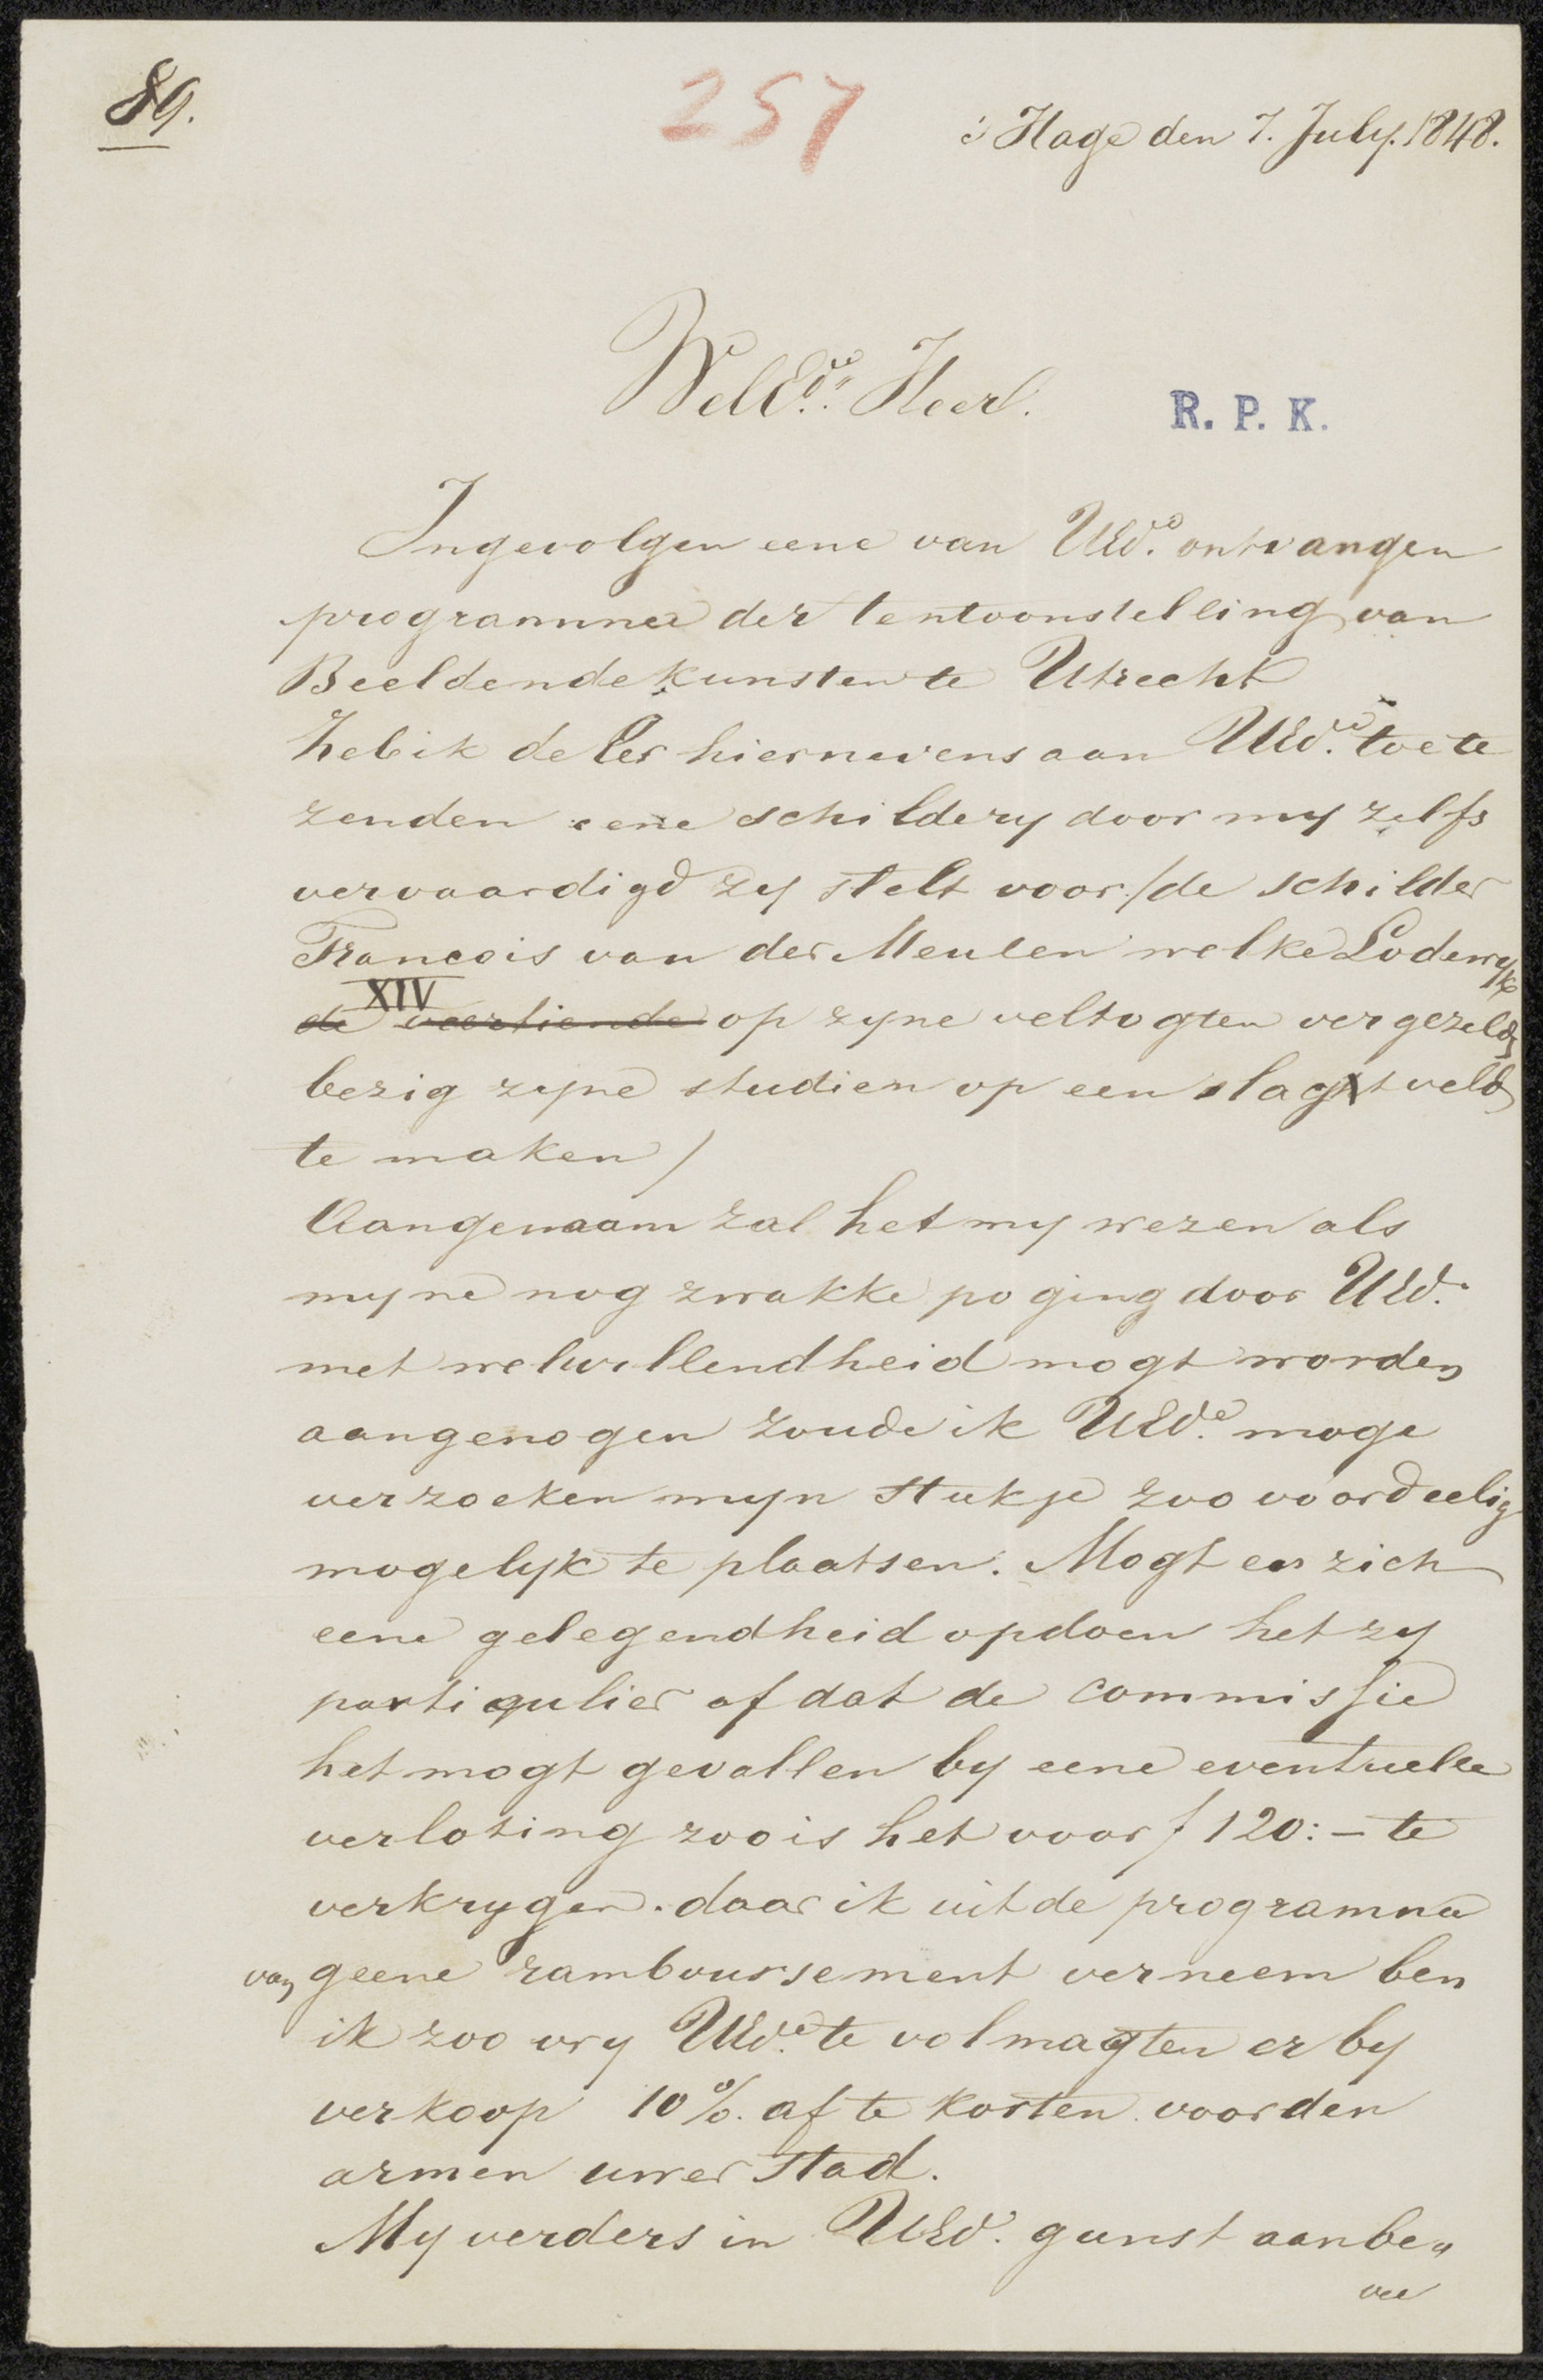 89.
257
s Hage den 7. July. 1848.
WelEd.e Heer.
R. P. K.
Ingevolgen eene van UEd.e ontvangen
programma der tentoonstelling van
Beeldende kunsten te Utrecht
heb ik de Eer hiernevens aan UEd.e toe te
zenden eene schildery door my zelfs
vervaardigd zy stelt voor /de schilder
Francois van der Meulen welke Lodewyk
XIV
de veertiende op zyne veltogten vergezeld
bezig zyne studien op een slagtveld
te maken/
Aangenaam zal het my wezen als
myne nog zwakke poging door UEd.
met welwillendheid mogt worden
aangenogen zoude ik UEd.e moge
verzoeken myn stukje zoo voordeelig
mogelyk te plaatsen. Mogt er zich
eene gelegendheid opdoen het zy
partiqulier of dat de commissie
het mogt gevallen by eene eventueele
verloting zoo is het voor f 120:- te
verkrygen. daar ik uit de programma
van geene ramboursement verneem ben
ik zoo vry UEd.e te volmagten er by
verkoop 10%. af te korten voor den
armen uwer stad.
My verders in UEd. gunst aanbe„
vee